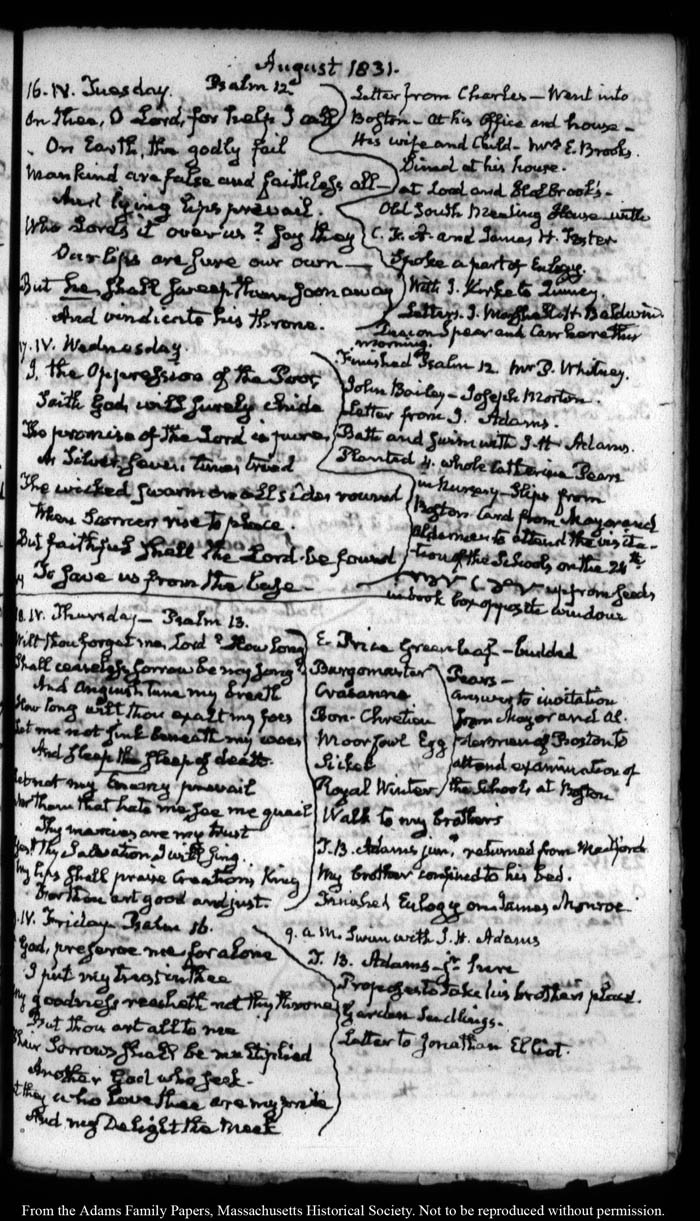 August 1831.
16. IV. Tuesday. Psalm 12th
On thee, O Lord, for help I call
On Earth, the godly fail
Mankind are false and faithless all—
And lying lips prevail.
Who Lords it over us? say they
Our lips are sure our own—
But he shall sweep them soon away
And vindicate his throne.
Letter from Charles — Went into
Boston — at his Office and house —
His wife and Child — Mrs E. Brooks.
Dined at his house.
at Lord and Holbrook's —
Old South Meeting House with
C. F. A. and James H. Foster
Spoke a part of Eulogy.
With J. Kirk to Quincy.
Letters. J. Marshall. H. Baldwin.
Deacon Spear and Carr here this
morning.
17. IV. Wednesday.
I, the Oppression of the Poor,
Saith God, will surely chide
The promise of the Lord is pure,
As Silver seven times tried
The wicked swarm on all sides round
When Sorrows rise to place.
But faithful shall the Lord be found
To save us from the base —
Finished Psalm 12. Mr P. Whitney.
John Bailey — Joseph Morton.
Letter from J. Adams.
Bath and swim with J. H. Adams.
Planted 4. whole Catherine Pears
in Nursery — Slips from
Boston. Card from Mayor and
aldermen to attend the visita-
tion of the Schools on the 24th
up from seeds
in book box opposite window
18. IV. Thursday — Psalm 13.
Wilt thou forget me, Lord? How long
Shall ceaseless sorrow be my song?
And Anguish tune my breath
How long wilt thou exalt my foes
Let me not sink beneath my woes
And sleep the sleep of death.
Let not my Enemy prevail
Nor them that hate me see me quail
Thy mercies are my trust
Yes! Thy Salvation I will sing.
My lips shall praise Creations King
For thou art good and just.
E. Price Greenleaf — budded
Burgomaster
Crasanne
Bon-Chretien
Moor fowl Egg
Sickel
Royal Winter
Pears —
answer to invitation
from Mayor and Al-
dermen of Boston to
attend examination of
the Schools at Boston
Walk to my brother's
T. B. Adams junr returned from Medford
My brother confined to his bed.
Finished Eulogy on James Monroe
IV. Friday Psalm 16.
God, preserve me for alone
I put my trust in thee
My goodness reacheth not thy throne
But thou art all to me
Their Sorrows shall be multiplied
Another God who seek.
But they who love thee are my pride
And my Delight the Meek
9. a.m. Swim with J. H. Adams
T. B. Adams jr here
Proposes to take his brother's place.
Garden Seedlings.
Letter to Jonathan Elliot.
From the Adams Family Papers, Massachusetts Historical Society. Not to be reproduced without permission.